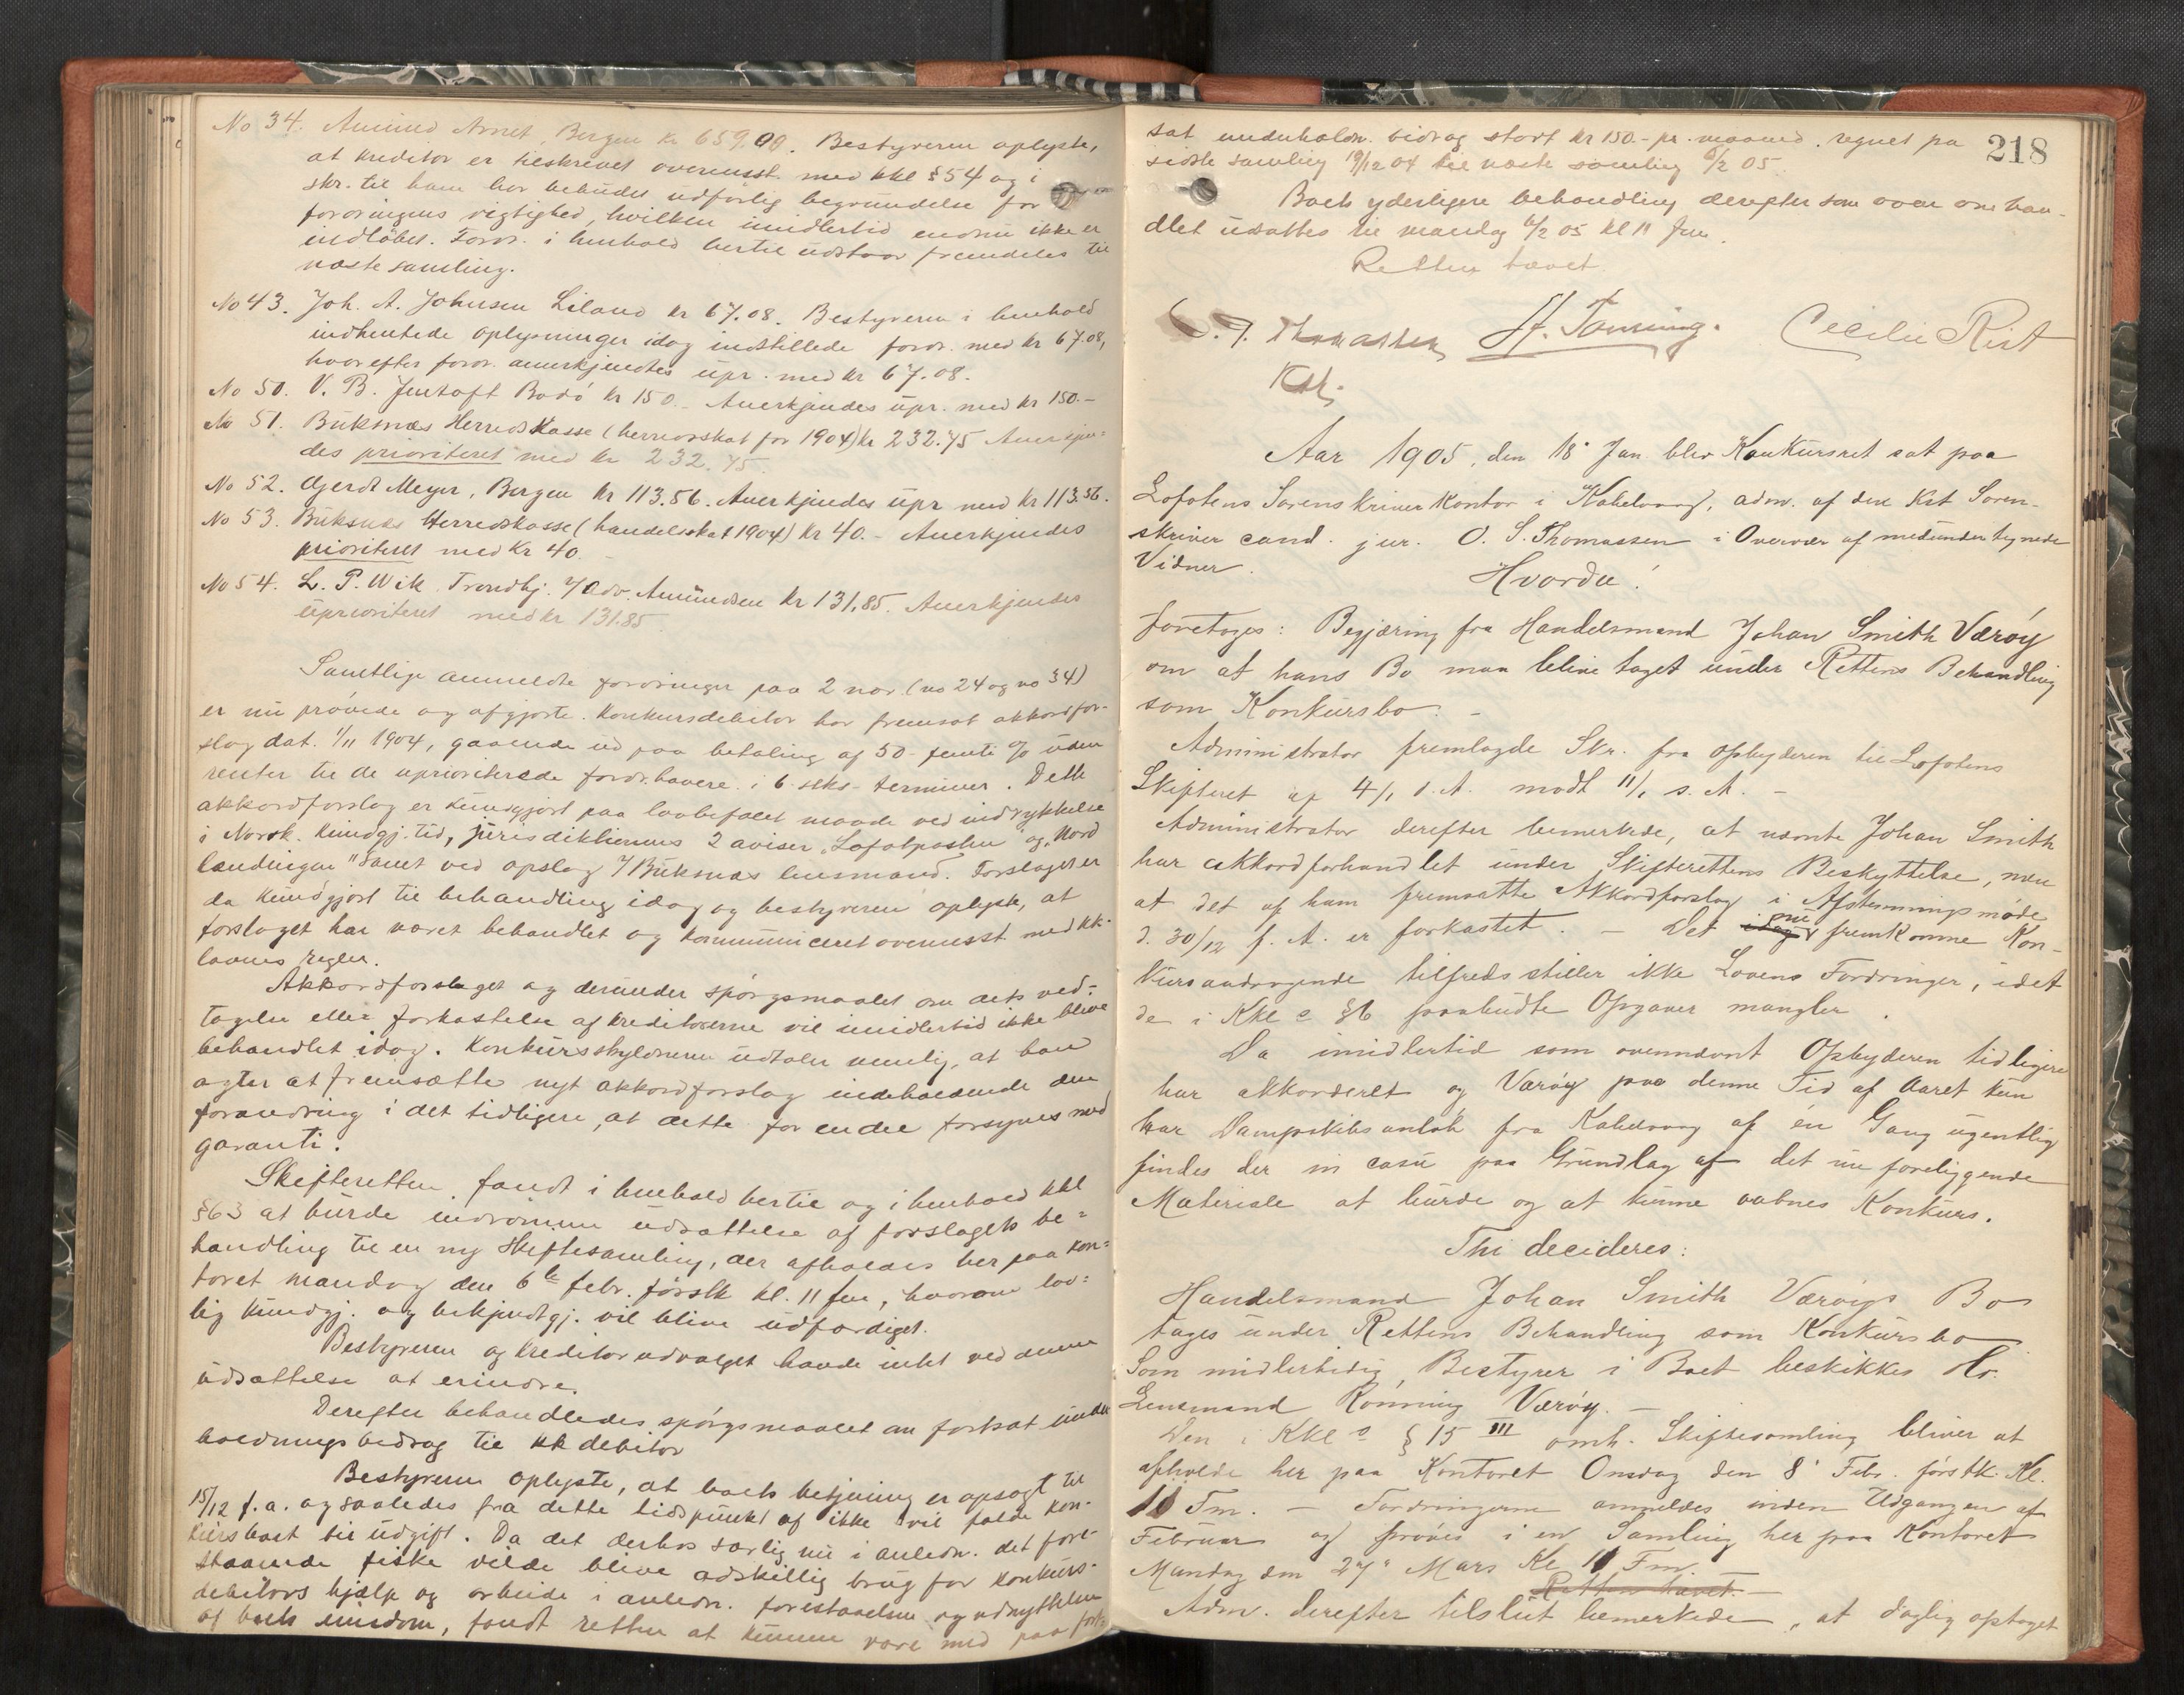 No 34. Amund Bergen kr 659.00. Bestyreren oplyste,
at kreditor er tilskrevet overensst. med kkl § 54 og i
skr. til ham har bebudet udførlig begrundelse for
fordringens rigtighed, hvilken imidlertid endnu ikke er
indløbet. Fordr. i henhold hertil udstaar fremdeles til
næste samling.
No 43. Joh. A. Johnsen Liland kr 67.08. Bestyreren i henhold
indhentede oplysninger idag indstillede fordr. med kr 67.08,
hvorefter fordr. anerkjendtes upr. med kr 67.08.
No 50. V. B. Jentoft Bodó kr 150.- Anerkjendes upr. med kr 150.-
No 51. Buksnæs Herredskasse (herredsskat for 1904) kr 232.75 Anerkjen-
des prioriteret med kr 232.75.
No 52. Gerdt Meyer, Bergen kr 113.56. Anerkjendes upr med kr 113.56.
No 53. Buksnæs Herredskasse (handelsskat 1904) kr 40.- Anerkjendes
prioriteret med kr 40.-
No 54. L. P. Wik. Trondhj. v/ Adv. Amundsen kr 131,85. Anerkjendes
uprioriteret med kr 131.85.
Samtlige anmeldte fordringer paa 2 nær (no 24 og no 34)
er nu prøvede og afgjorte. Konkursdebitor har fremsat akkordfor-
slag dat. 1/11 1904, gaaende ud paa betaling af 50- femti % uden
renter til de uprioriterede fordr.havere i 6 seks- terminer. Dette
akkordforslag er kundgjort paa lovbefalet maade ved indrykkelse
i Norsk Kundgj.tid, jurisdiktionens 2 aviser "Lofotposten" og "Nord
lændingen" samt ved opslag v/ Buksnæs lensmand. Forslaget er
da kundgjort til behandling idag og bestyreren oplyste, at
forslaget har været behandlet og kommuniceret overensst med kk-
lovens regler.
Akkordforslaget og derunder spørgsmaalet om dets ved-
tagelse eller forkastelse af kreditorerne vil imidlertid ikke blive
behandlet idag. Konkursskyldneren udtaler nemlig, at han
agter at fremsætte nyt akkordforslag indeholdende den
forandring i det tidligere, at dette for en del forsynes med
garanti.
Skifteretten fandt i henhold hertil og i henhold kkl
§63 at burde indrømme udsættelse af forslagets be-
handling til en ny skiftesamling, der afholdes her paa kon-
toret mandag den 6te febr. førstk kl. 11 fm, hvorom lov-
lig kundgj. og bekjendtgj. vil blive udfærdiget.
Bestyreren og kreditorudvalget havde intet ved denne
udsættelse at erindre.
Derefter behandledes spørgsmaalet om fortsat under
holdningsbidrag til kk debitor
Bestyreren oplyste, at boets betjening er opsagt til
15/12 f.a. og saaledes fra dette tidspunkt af ikke vil falde kon-
kursboet til udgift. Da det derhos særlig nu i anledn. det fore-
staaende fiske vilde blive adskillig brug for konkurs-
debitors hjælp og arbeide i anledn. forestaaelsen og udnyttelsen
af boets eiendom, fandt retten at kunne være med paa fort-
218
sat underholdn. bidrag stort kr 150.- pr. maaned. regnet fra
sidste samling 19/12 04 til næste samling 6/2 05.
Boets yderligere behandling derefter som oven om han-
dlet udsattes til mandag 6/2 05 kl 11 fm.
Retten hævet
O. S. Thomassen H. Tønning. Cecilie Rist
Kst.
Aar 1905, den 18' Jan blev Konkursret sat paa
Lofotens Sorenskriverkontor i Kabelvaag, adm. af den Kst Soren-
skriver cand. jur. O. S. Thomassen i Overvær af medundertegnede
Vidner.
Hvorda!
foretoges: Begjæring fra Handelsmand Johan Smith Værøy
om at hans Bo maa blive taget under Rettens Behandling
som Konkursbo. -
Administrator fremlagde Skr. fra Opbyderen til Lofotens
Skifteret af 4/1 d. A. modt 11/1 s. A. -
Administrator derefter bemerkede, at nævnte Johan Smith
har akkordforhandlet under Skifterettens Beskyttelse, men
at det af ham fremsatte Akkordforslag i Afstemningsmøde
d. 30/12 f. A. er forkastet. - Det idag nu fremkomne Kon-
kursandragende tilfredsstiller ikke Lovens Fordringer, idet
de i Kkl s §6 paabudte Opgaver mangler.
Da imidlertid som ovennævnt Opbyderen tidligere
har akkorderet og Værøy paa denne Tid af Aaret kun
har Dampskibsanløb fra Kabelvaag af én Gang ugentlig
findes der in casu paa Grundlag af det nu foreliggende
Materiale at burde og at kunne aabnes Konkurs.
Thi decideres:
Handelsmand Johan Smith Værøys Bo
tages under Rettens Behandling som Konkursbo
Som midlertidig Bestyrer i Boet beskikkes Hr.
Lensmand Rønning Værøy. -
Den i Kkl s § 15 III omh. Skiftesamling bliver at
afholde her paa Kontoret Onsdag den 8' Febr. førstk. Kl.
11 Fm. - Fordringerne anmeldes inden Udgangen af
Februar og prøves i en Samling her paa Kontoret
Mandag den 27' Mars Kl 11 Fm.
Retten hævet. -
Adm. derefter tilslut bemerkede, at daglig optaget